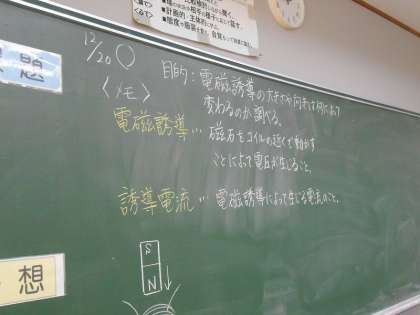 12/20
課題
目的:電磁誘導の大きさや向きは何によって
変わるのか調べる。
〈メモ〉
電磁誘導…磁石をコイルの近くで動かす
ことによって電圧が生じること。
誘導電流…電磁誘導によって生じる電流のこと。
想
S
N